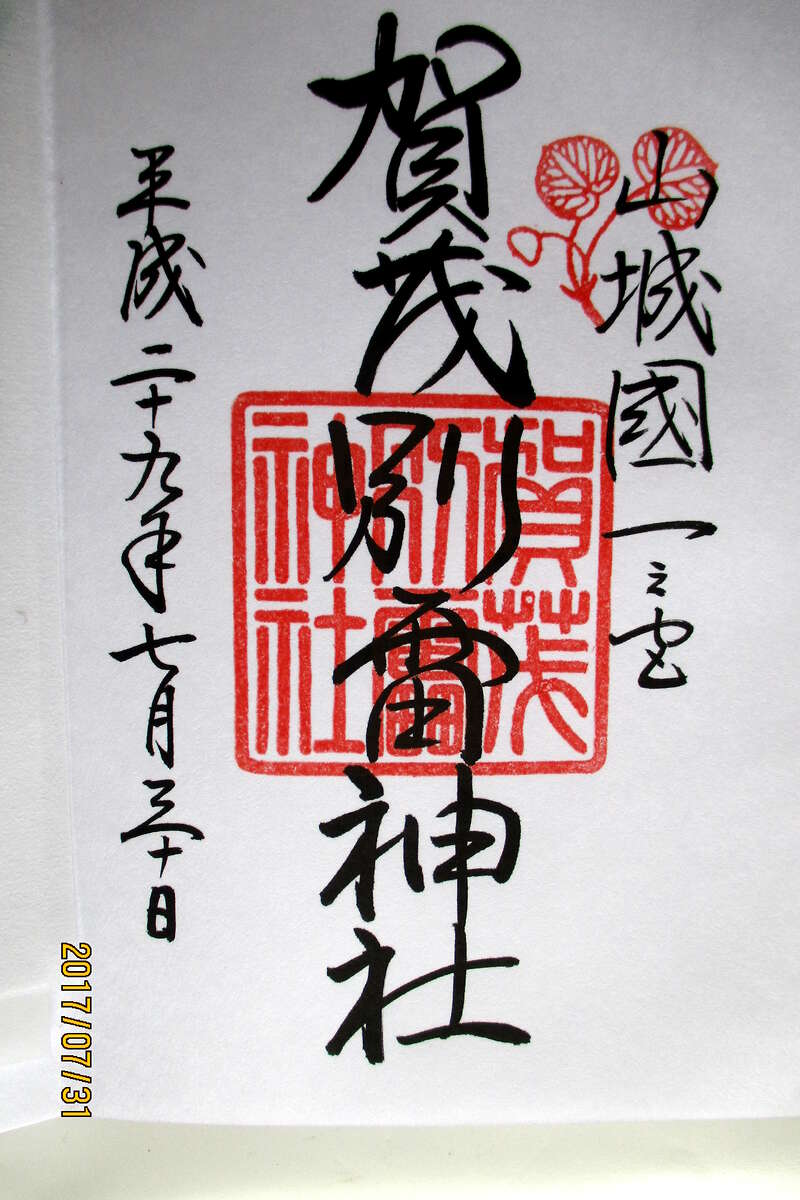 山城國一之宮
賀茂別雷神社
平成二十九年七月三十日
賀茂
別雷
神社
2017/07/31